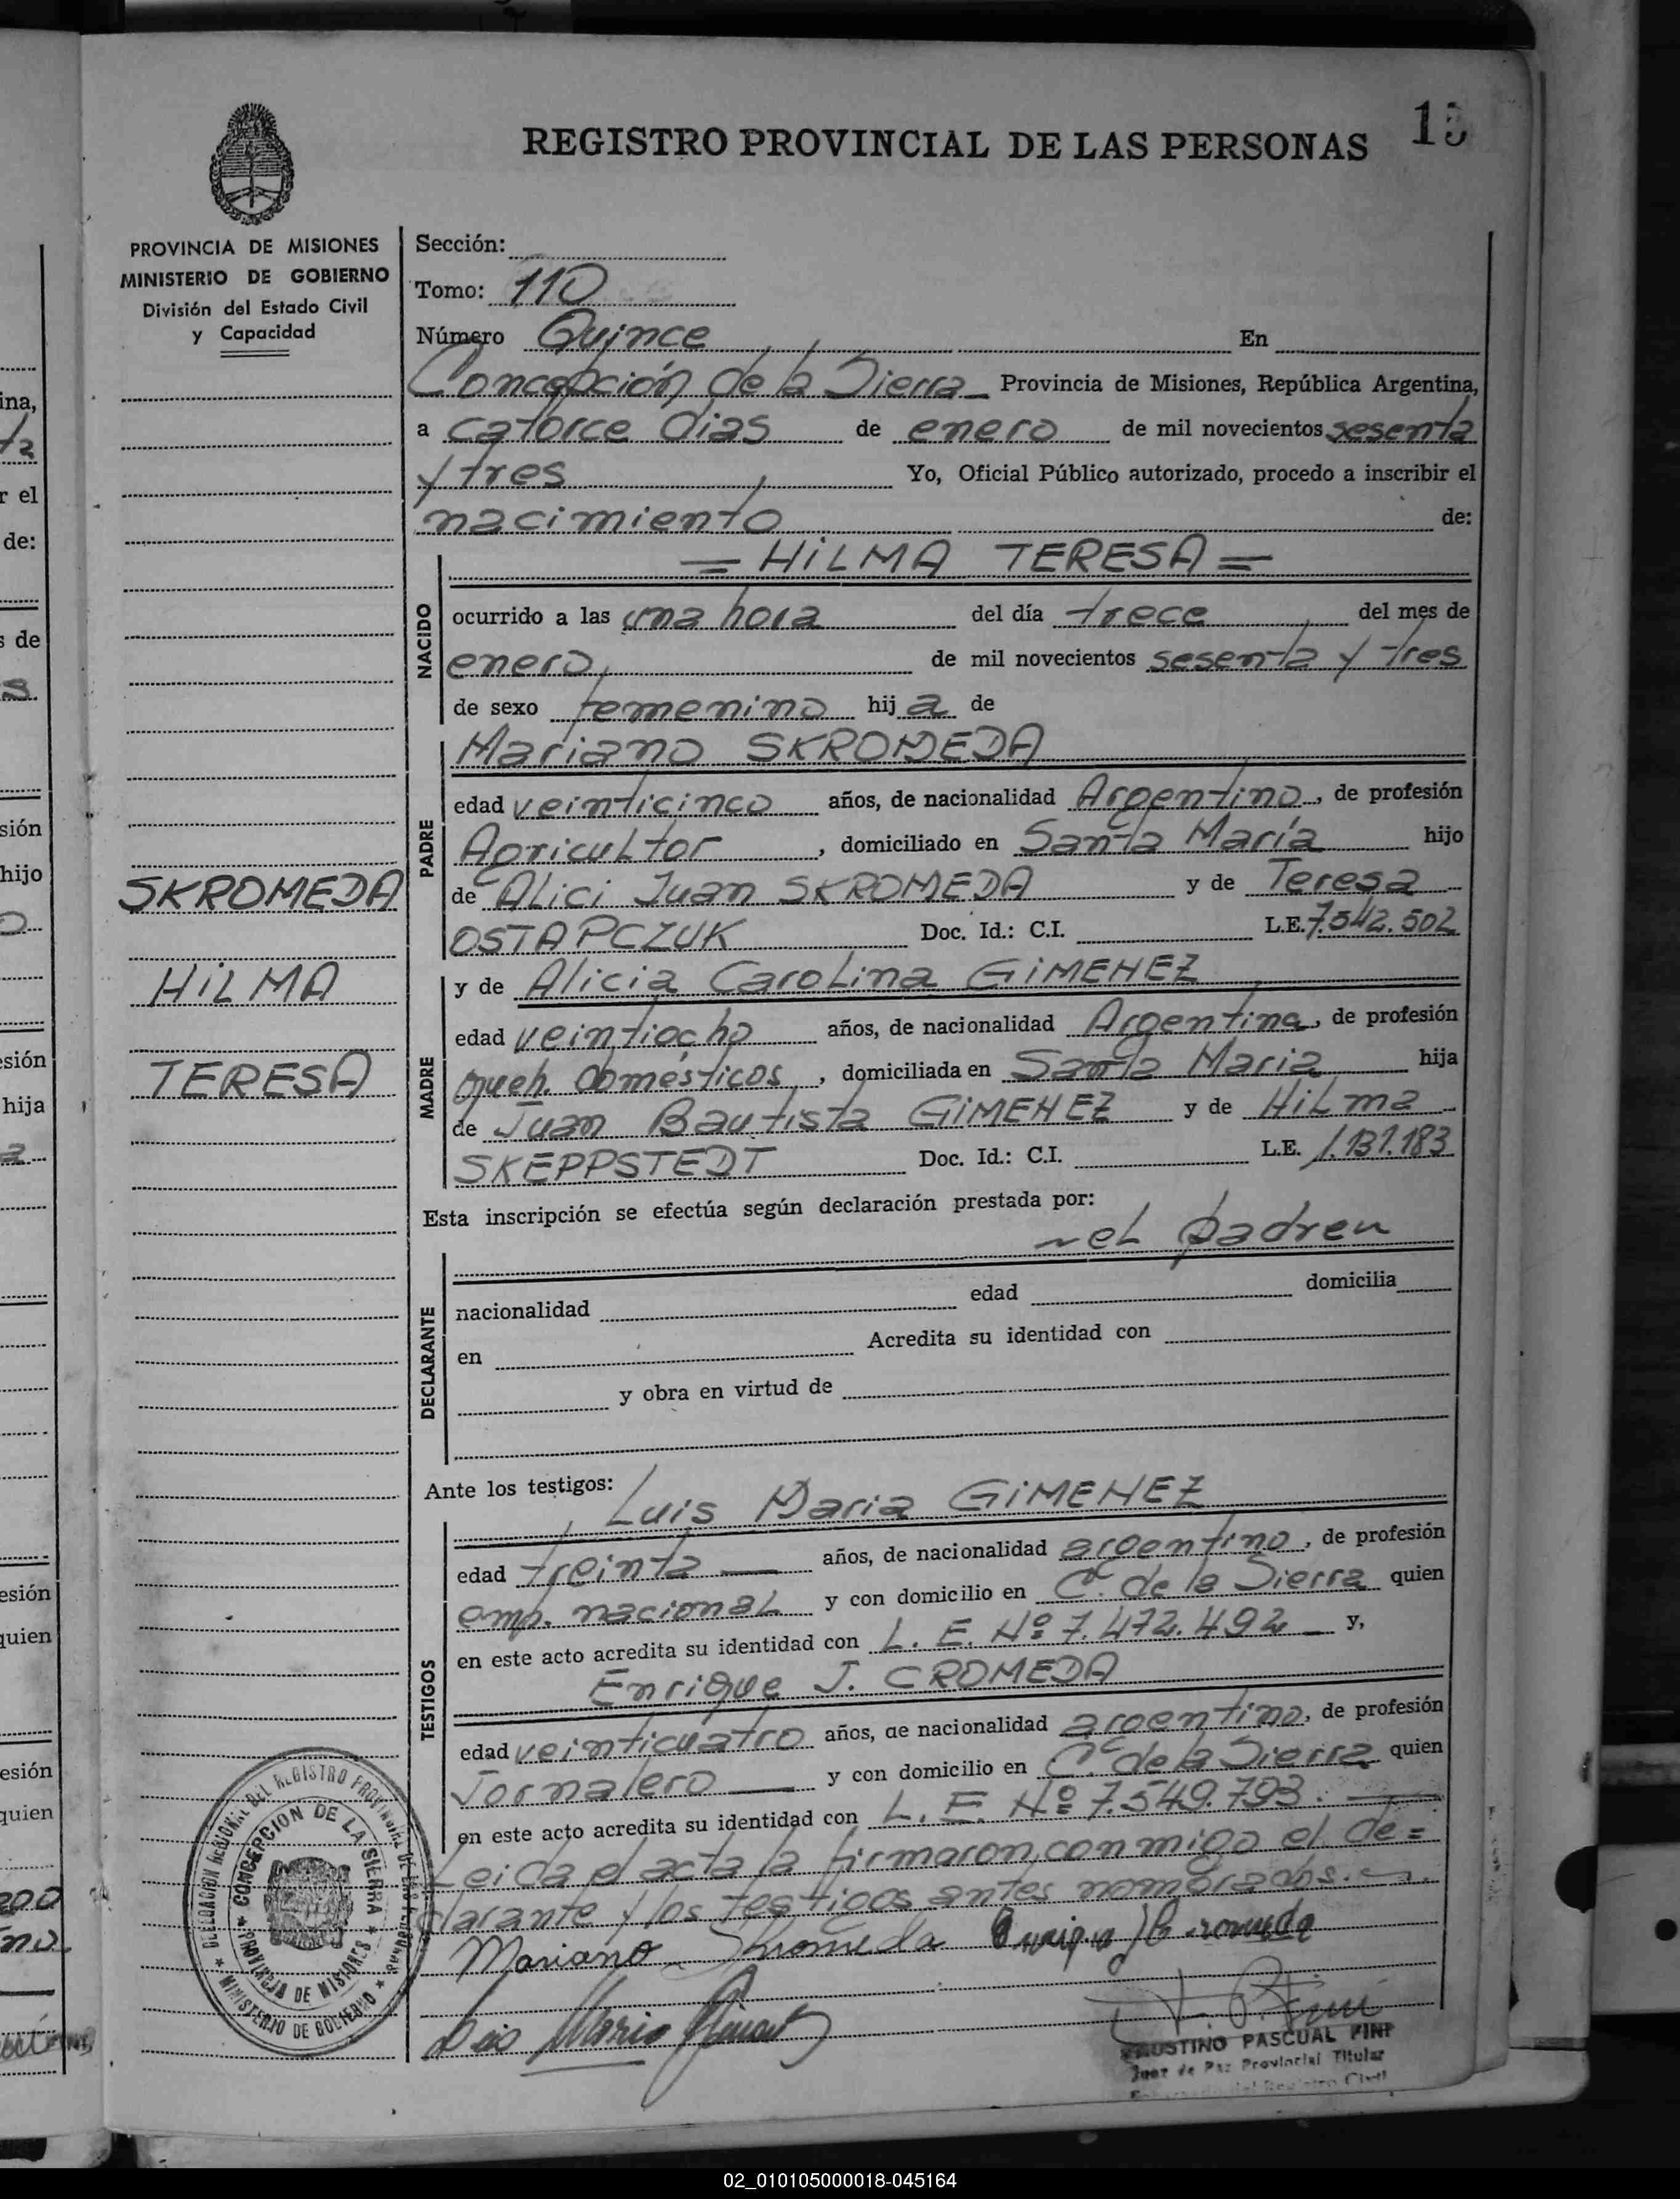 REGISTRO PROVINCIAL DE LAS PERSONAS
PROVINCIA DE MISIONES
MINISTERIO DE GOBIERNO
División del Estado Civil
y Capacidad
SKROMEDA
HILMA
TERESA
Sección:
Tomo: 110
Número Quince En
Concepción de la Sierra Provincia de Misiones, República Argentina,
a catorce dias de enero de mil novecientos sesenta
y tres Yo, Oficial Público autorizado, procedo a inscribir el
nacimiento de:
= HILMA TERESA =
NACIDO
ocurrido a las una hora del día trece del mes de
enero de mil novecientos sesenta y tres
de sexo femenino hij a de
Mariano SKROMEDA
PADRE
edad veinticinco años, de nacionalidad Argentino, de profesión
Agricultor, domiciliado en Santa María hijo
de Alici Juan SKROMEDA y de Teresa
OSTAPCZUK Doc. Id.: C.I. L.E. 7.542.502
y de Alicia Carolina GIMENEZ
MADRE
edad veintiocho años, de nacionalidad Argentina, de profesión
queh. domésticos, domiciliada en Santa Maria hija
de Juan Bautista GIMENEZ y de Hilma
SKEPPSTEDT Doc. Id.: C.I. L.E. 1.131.183
Esta inscripción se efectúa según declaración prestada por:
el padre
DECLARANTE
nacionalidad edad domicilia
en Acredita su identidad con
y obra en virtud de
Ante los testigos:
Luis Maria GIMENEZ
TESTIGOS
edad treinta años, de nacionalidad argentino, de profesión
emp. nacional y con domicilio en C. de la Sierra quien
en este acto acredita su identidad con L. E. Nº 7.472.492 y,
Enrique J. CROMEDA
edad veinticuatro años, de nacionalidad argentino, de profesión
Jornalero y con domicilio en C. de la Sierra quien
en este acto acredita su identidad con L. E. Nº 7.549.793.
Leida el acta la firmaron conmigo el de=
clarante y los testigos antes nombrados.
Mariano Skromeda Enrique J Cromeda
Luis Maria Gimenez
FAUSTINO PASCUAL PINI
Juez de Paz Provincial Titular
DELEGACION REGIONAL DEL REGISTRO PROVINCIAL DE LAS PERSONAS
CONCEPCION DE LA SIERRA
PROVINCIA DE MISIONES
MINISTERIO DE GOBIERNO
02_010105000018-045164